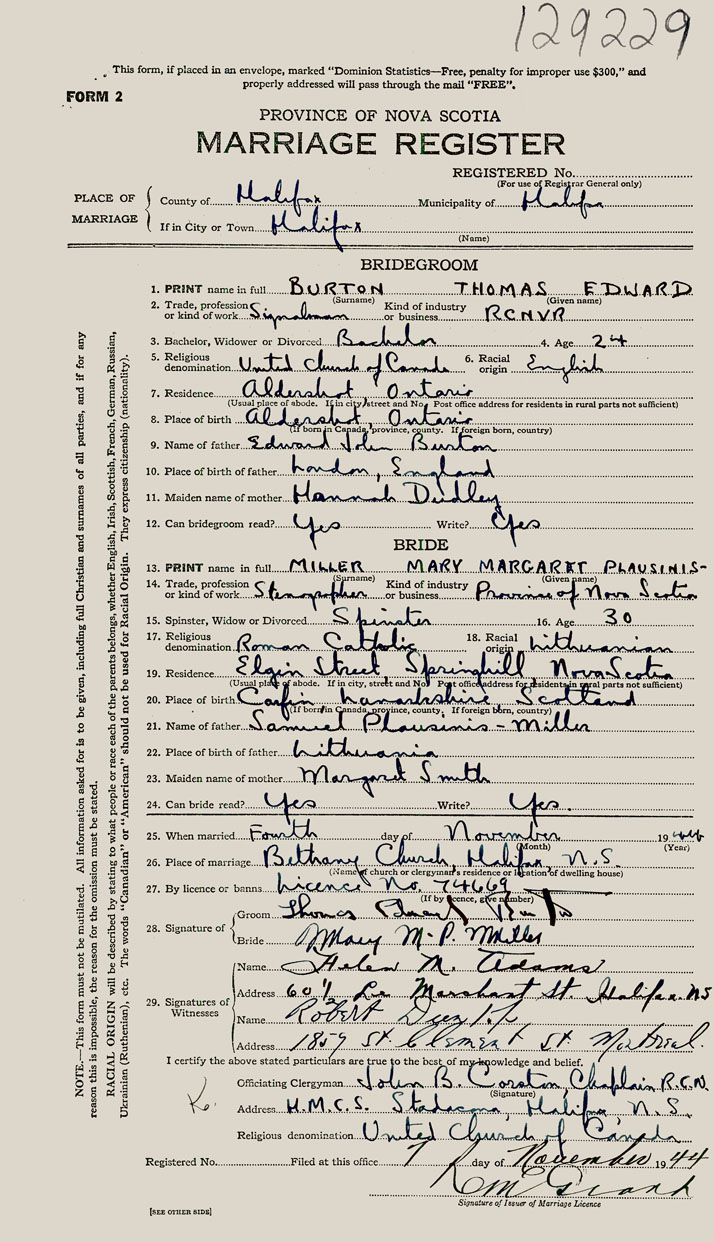 129229
This form, if placed in an envelope, marked "Dominion Statistics—Free, penalty for improper use $300," and
properly addressed will pass through the mail "FREE".
FORM 2
PROVINCE OF NOVA SCOTIA
MARRIAGE REGISTER
REGISTERED No.
(For use of Registrar General only)
PLACE OF MARRIAGE
County of Halifax Municipality of Halifax
If in City or Town Halifax
(Name)
BRIDEGROOM
1. PRINT name in full BURTON THOMAS EDWARD
(Surname) (Given name)
2. Trade, profession or kind of work Signalman Kind of industry or business RCNVR
3. Bachelor, Widower or Divorced Bachelor 4. Age 24
5. Religious denomination United Church of Canada 6. Racial origin English
7. Residence Aldershot Ontario
(Usual place of abode. If in city, street and No. Post office address for residents in rural parts not sufficient)
8. Place of birth Aldershot, Ontario
(If born in Canada, province, county. If foreign born, country)
9. Name of father Edward John Burton
10. Place of birth of father London, England
11. Maiden name of mother Hannah Dudley
12. Can bridegroom read? Yes Write? Yes
BRIDE
13. PRINT name in full MILLER MARY MARGARET PLAUSINIS-
(Surname) (Given name)
14. Trade, profession or kind of work Stenographer Kind of industry or business Province of Nova Scotia
15. Spinster, Widow or Divorced Spinster 16. Age 30
17. Religious denomination Roman Catholic 18. Racial origin Lithuanian
19. Residence Elgin Street, Springhill, Nova Scotia
(Usual place of abode. If in city, street and No. Post office address for residents in rural parts not sufficient)
20. Place of birth Carfin Lanarkshire, Scotland
(If born in Canada, province, county. If foreign born, country)
21. Name of father Samuel Plausinis-Miller
22. Place of birth of father Lithuania
23. Maiden name of mother Margaret Smith
24. Can bride read? Yes Write? Yes.
25. When married Fourth day of November 1944
(Month) (Year)
26. Place of marriage Bethany Church, Halifax, N.S.
(Name of church or clergyman's residence or location of dwelling house)
27. By licence or banns Licence No. 74669
(If by licence, give number)
28. Signature of
Groom Thomas Edward Burton
Bride Mary M.P. Miller
29. Signatures of Witnesses
Name Helen M. Adams
Address 60½ Le Marchant St. Halifax. N.S
Name Robert
Address 1859 St. Clement St. Montreal.
I certify the above stated particulars are true to the best of my knowledge and belief.
Officiating Clergyman John B. Corston Chaplain R.C.N.
(Signature)
Address H.M.C.S. Stadacona, Halifax, N.S.
Religious denomination United Church of Canada
Registered No. Filed at this office 7 day of November 1944
Signature of Issuer of Marriage Licence
[SEE OTHER SIDE]
NOTE.—This form must not be mutilated. All information asked for is to be given, including full Christian and surnames of all parties, and if for any
reason this is impossible, the reason for the omission must be stated.
RACIAL ORIGIN will be described by stating to what people or race each of the parents belongs, whether English, Irish, Scottish, French, German, Russian,
Ukrainian (Ruthenian), etc. The words "Canadian" or "American" should not be used for Racial Origin. They express citizenship (nationality).